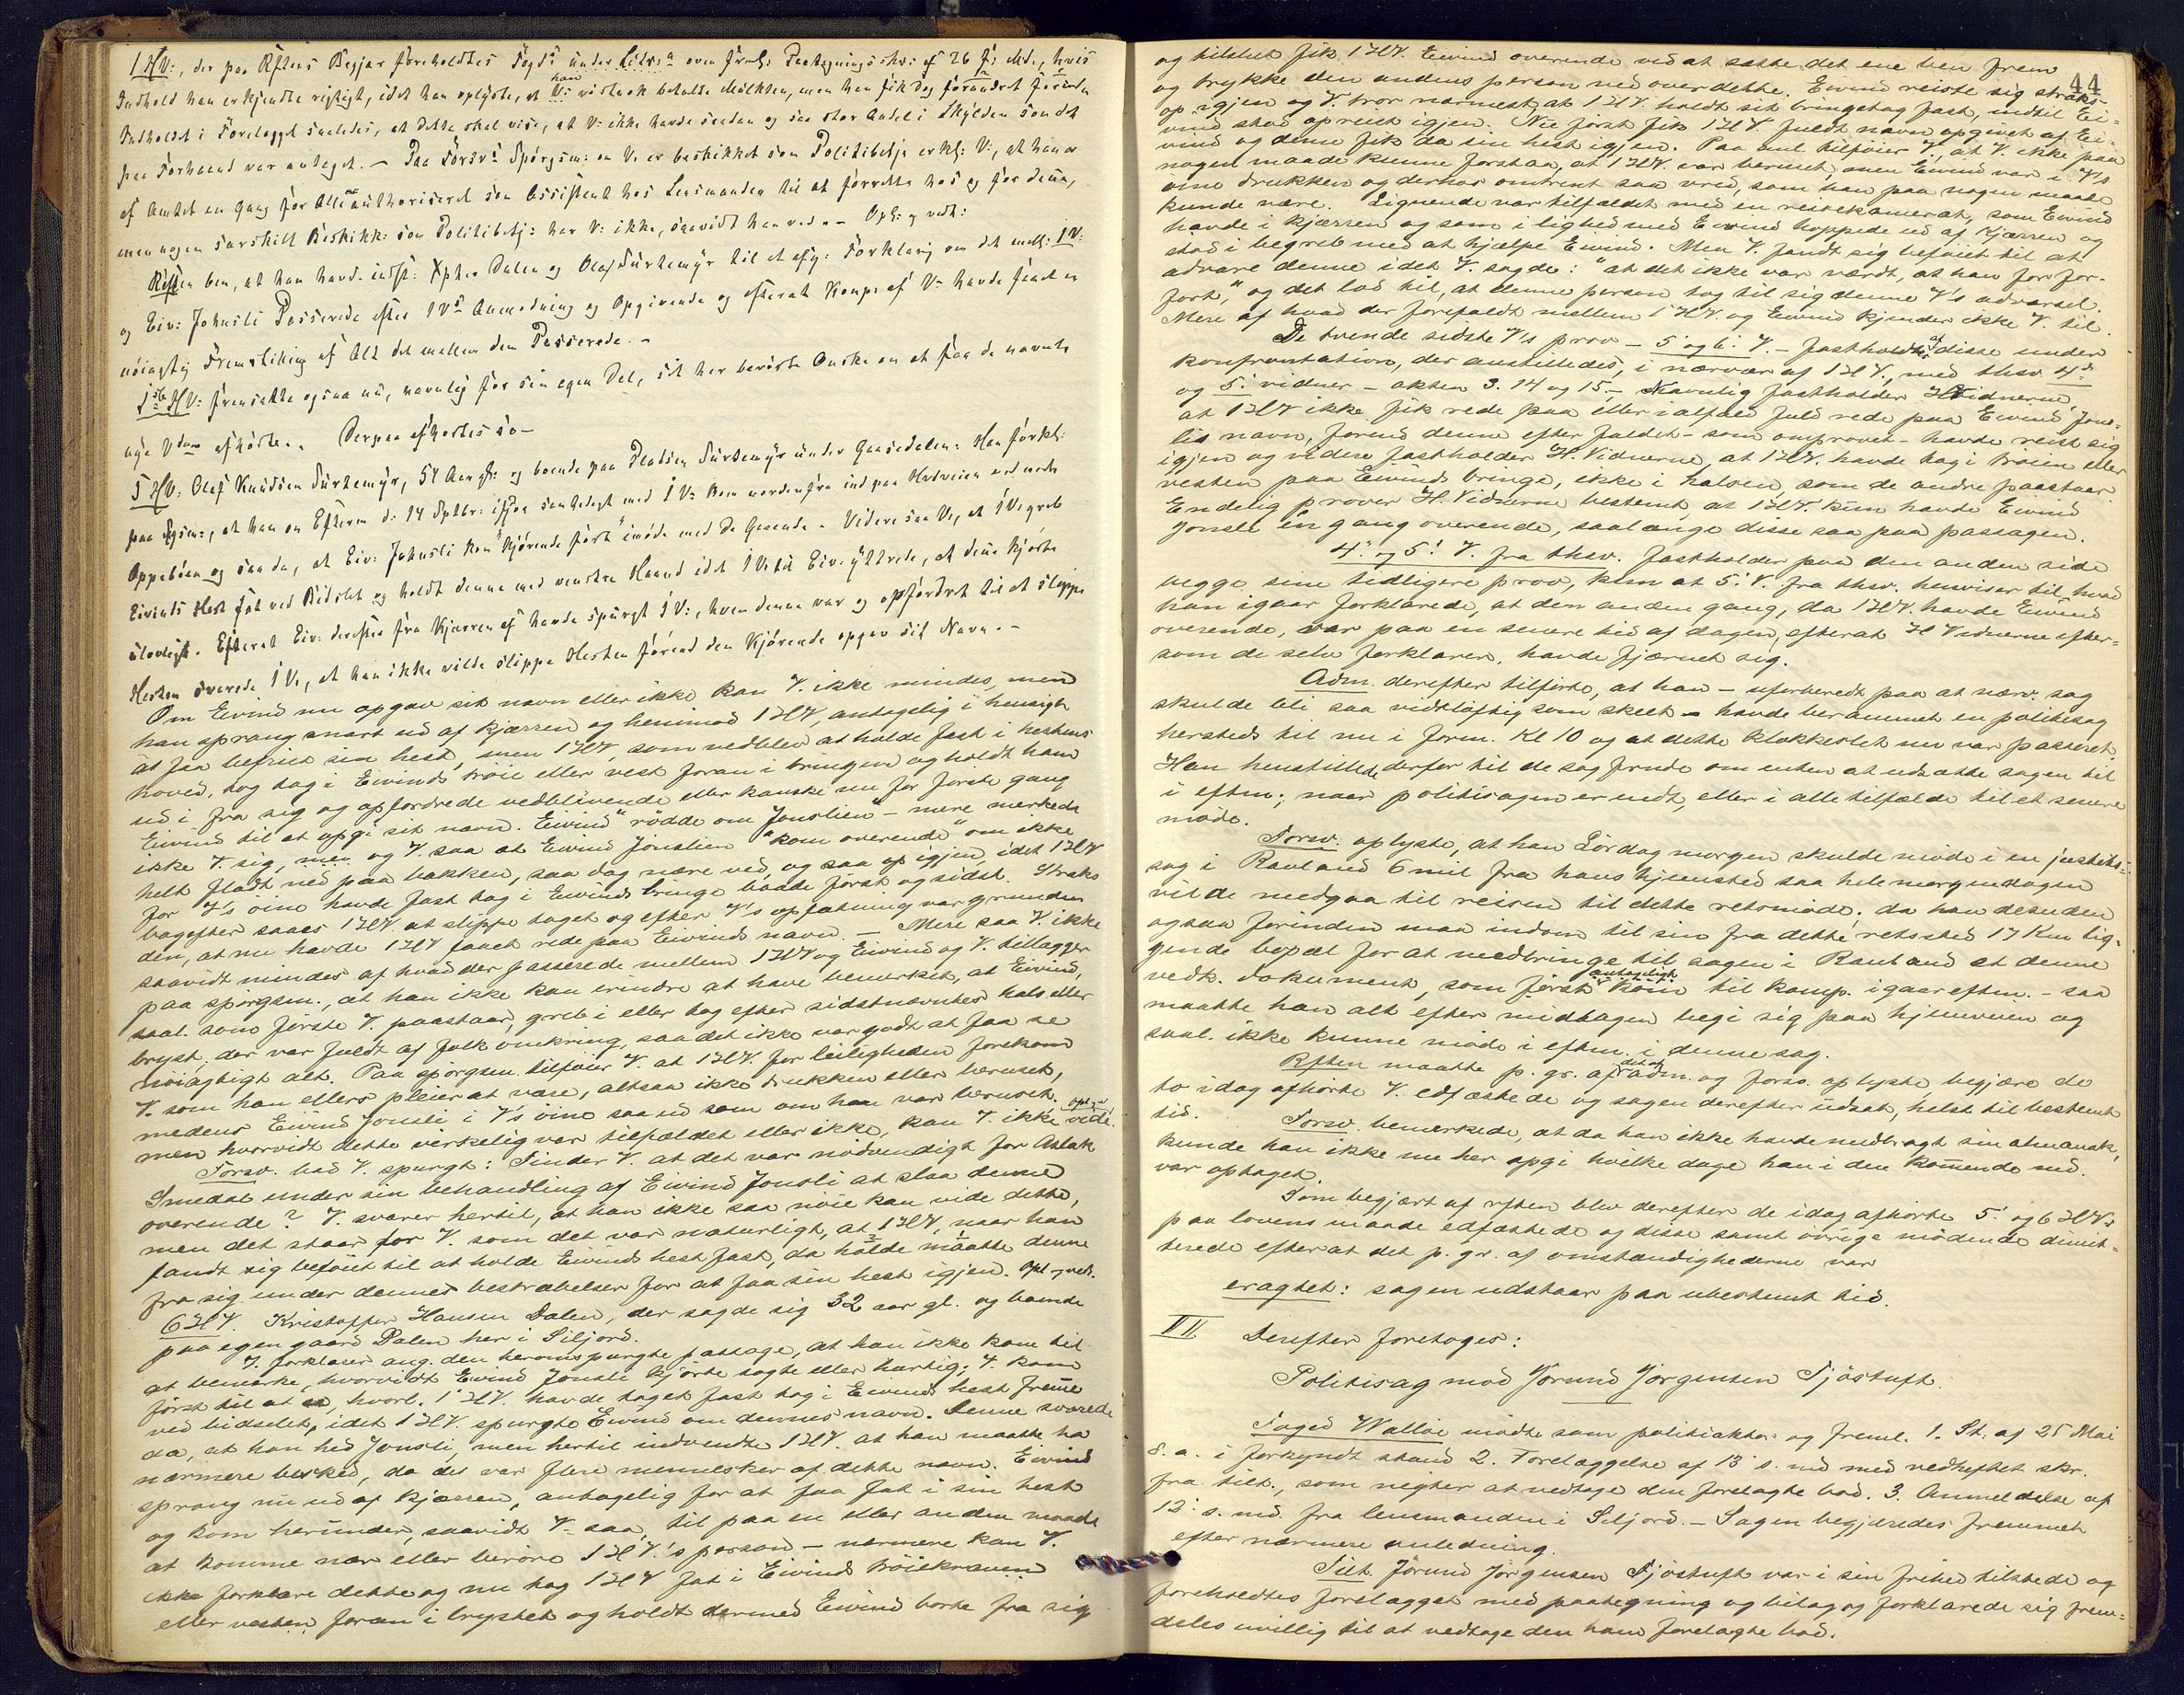 1 HV:, der paa Rftens Begjær foreholdtes Fogds under Litr: a oven frml: Paategningsskr: af 26 f: Md:, hvis
Indhold han erkjendte rigtigt, idet han oplyste, at V: vistnok betalte Mulkten, men han fik dog forandret
Indholdet i Forelægget saaledes, at dette skal vise, at V: ikke havde saadan og saa stor Andel i Skylden som det
paa Forhaand var antaget. – Paa Forsv's Spörgsm: om V. er beskikket som Politibetj: erkl: V:, at han er
af Amtet en Gang for Alle authoriseret som Assistent hos Lensmanden til at forrette hos og for denne,
men nogen særskilt Beskikk: som Politibetj: har V: ikke, saavidt han ved. – Opl: og vedt:
Rften bem, at han havd. indst: Xpher Dalen og Olaf Turtemyr til at afg: Forklarig om det mell: 1 V:
og Eiv: Johnsli Passerede efter 1 V's Anmodning og Opgivende og efterat Komp: af V: havde faaet en
nöiagtig Fremstilling af Alt det mellem dem Passerede. –
1ste HV: fremsatte ogsaa nu, navnlig for sin egen Del, sit her berörte Önske om at faa de nævnte
nye Vdner afhörte. Derpaa afhörtes so –
5 HV: Olaf Knudsen Turtemyr, 54 Aar gl: og boende paa Pladsen Turtemyr under Gaasedalen: Han forkl:
paa Spsm:, at han om Efterm d: 14 Sptbr: ifjor samtidigt med 1 V: kom nordenfra ind paa Hovdveien ved nedre
Oppeböen og saa da, at Eiv: Johnsli kom "kjörende fort" imöde med de Gaaende. Videre saa V:, at 1 V: greb
Eivinds Hest fat ved Bidslet og holdt denne med venstre Haand idet 1 V: til Eiv: yttrede, at denne kjorte
ulovligt. Efterat Eiv: derefter fra Kjærren af havde spurgt 1 V:, hvem denne var og opfordret til at slippe
Hesten svarede 1 V:, at han ikke vilde slippe Hesten förend den Kjörende opgav sit Navn. –
Om Eivind nu opgav sit navn eller ikke kan V. ikke mindes, men
han sprang snart ud af kjærren og henimod 1 HV, antagelig i hensigt
at faa befriet sin hest, men 1 HV, som vedblev at holde fast i hestens
hoved, tog tag i Eivinds tröie eller vest foran i bringen og holdt ham
ud i fra sig og opfordrede vedblivende eller kanske nu for förste gang
Eivind til at opgi sit navn. Eivind "rödde om Jonslien" – mere merkede
ikke V. sig, men og V. saa at Eivind Jönslien "kom overende" om ikke
helt fladt ned paa bakken, saa dog nære ved, og saa op igjen, idet 1 HV
for V's öine havde fast tag i Eivinds bringe baade först og sidst. Straks
bagefter saaes 1 HV. at slippe taget og efter V's opfatning var grunden
den, at nu havde 1 HV faaet rede paa Eivinds navn. – Mere saa V. ikke
saavidt mindes af hvad der passerede mellem 1 HV og Eivind og V. tillægger
paa spörgsm., at han ikke kan erindre at have bemærket, at Eivind,
saal. som förste V. paastaar, greb i eller tog efter sidstnævntes hals eller
bryst, der var fuldt af folk omkring, saa det ikke var godt at faa se
nöiagtigt alt. Paa spörgsm. tilföier V. at 1 HV. for leiligheden forekom
V. som han ellers pleier at være, altsaa ikke drukken eller beruset,
medens Eivind Jonsli i V's öine saa ud som om han var beruset,
men hvorvidt dette virkelig var tilfældet eller ikke, kan V. ikke vide. Opl. og
Forsv. bad V. spurgt: Finder V. at det var nödvendigt for Aslak
Smedal under sin behandling af Eivind Jonsli at slaa denne
overende? V. svarer hertil, at han ikke saa nöie kan vide dette,
men det staar for V. som det var naturligt, at 1 HV, naar han
fandt sig beföiet til at holde Eivinds hest fast, da holde maatte denne
fra sig under dennes bestræbelser for at faa sin hest igjen. Opl. og ved.
6 HV. Kristoffer Hansen Dalen, der sagde sig 32 aar gl. og boende
paa egen gaard Dalen her i Siljord.
V. forklarer ang. den heromspurgte passage, at han ikke kom til
at bemerke, hvorvidt Eivind Jonsli kjörte sagte eller hurtig; V. kom
först til at se, hvorl. 1 HV. havde taget fast tag i Eivinds hest fremme
ved bidselet, idet 1 HV. spurgte Eivind om dennes navn. Denne svarede
da, at han hed Jonsli, men hertil indvendte 1 HV. at han maatte ha
nærmere besked, da der var flere mennesker af dette navn. Eivind
sprang nu ud af kjærren, antagelig for at faa fat i sin hest
og kom herunder, saavidt V. saa, til paa en eller anden maade
at komme nær eller beröre 1 HV.'s person – nærmere kan V.
ikke forklare dette og nu tog 1 HV fat i Eivinds tröiekraven
eller vesten foran i brystet og holdt dermed Eivind borte fra sig
44
og tilslut fik 1 HV. Eivind overende ved at sætte det ene ben frem
og trykke den andens person ned over dette. Eivind reiste sig straks
op igjen og V. tror nærmest at 1 HV. holdt sit bringetag fast, indtil Ei-
vind stod opreist igjen. Nu först fik 1 HV. fuldt navn opgivet af Ei-
vind og denne fik da sin hest igjen. Paa anl. tilföier V., at V. ikke paa
nogen maade kunne forstaa, at 1 HV. var beruset, men Eivind var i V's
öine drukken og derhos omtrent saa vred, som han paa nogen maade
kunde være. Lignende var tilfældet med en reisekamerat, som Eivind
havde i kjærren og som i lighed med Eivind hoppede ud af kjærren og
stod i begreb med at hjælpe Eivind. Men V. fandt sig beföiet til at
advare denne idet V. sagde: "at det ikke var værdt, at han for for-
fort," og det lod til, at denne person tog til sig denne V's advarsel.
Mere af hvad der forefaldt mellem 1 HV. og Eivind kjender ikke V. til.
De tvende sidste V's prov – 5 og 6. V. – fastholdtes af disse under
konfrontation, der anstilledes, i nærvær af 1 HV., med thsv. 4de
og 5. vidner – akten 3. 14 og 15 –. Navnlig fastholder H Vidnerne,
at 1 HV ikke fik rede paa eller ialfald fuld rede paa Eivind Jons-
lis navn, förend denne efter faldet – som omprovet – havde reist sig
igjen og videre fastholder H. Vidnerne, at 1 HV. havde tag i tröien eller
vesten paa Eivinds bringe, ikke i halsen, som de andre paastaar.
Endelig prover H. Vidnerne bestemt, at 1 HV. kun havde Eivind
Jonsli én gang overende, saalænge disse saa paa passagen.
4. og 5. V. fra thsv. fastholder paa den anden side
begge sine tidligere prov, kun at 5. V. fra thsv. henviser til, hvad
han igaar forklarede, at den anden gang, da 1 HV. havde Eivind
overende, var paa en senere tid af dagen, efterat H Vidnerne efter-
som de selv forklarer, havde fjærnet sig.
Adm. derefter tilförte, at han – uforberedt paa at nærv. sag
skulde bli saa vidtlöftig som skeet – havde berammet en politisag
hersteds til nu i form. Kl 10 og at dette klokkeslet nu var passeret.
Han henstillede derfor til de sagförende om enten at udsætte sagen til
i eftm., naar politisagen er endt, eller i alle tilfælde til et senere
möde.
Forsv. oplyste, at han Lördag morgen skulde möde i en justits-
sag i Rauland 6 mil fra hans hjemsted saa hele morgendagen
vilde medgaa til reisen til dette retsmöde; da han desuden
ogsaa forinden maa indom til sin fra dette retssted 17 Km lig-
gende bopæl for at medbringe til sagen i Rauland et denne
vedk. dokument, som först antageligt kom til komp. igaar eftm. – saa
maatte han alt efter middagen begi sig paa hjemveien og
saal. ikke kunne möde i eftm. i denne sag.
Rften maatte p. gr. af det af adm. og forsv. oplyste, begjære de
to idag afhörte V. edfæstede og sagen derefter udsat, helst til bestemt
tid.
Forsv. bemerkede, at da han ikke havde medbragt sin almanak,
kunde han ikke nu her opgi hvilke dage han i den kommende md.
var optaget.
Som begjært af rften blev derefter de idag afhörte 5. og 6 HV:
paa lovens maade edfæstede og disse samt övrige mödende dimit-
terede efterat det p. gr. af omstændighederne var
eragtet: sagen udstaar paa ubestemt tid.
VII Derefter foretoges:
Politisag mod Jörund Jörgensen Tjöstuft.
Foged Wallöe mödte som politiaktor og freml. 1. St: af 25 Mai
d. a. i forkyndt stand 2. Forelæggelse af 13 s. md med vedheftet skr.
fra tilt., som negter at vedtage den forelagte bod. 3. Anmeldelse af
12. s. md. fra lensmanden i Siljord. – Sagen begjæredes fremmet
efter nærmere anledning.
Tilt. Jörund Jörgensen Tjöstuft var i sin frihed tilstede og
foreholdtes forelægget med paategning og bilag og forklarede sig frem-
deles uvillig til at vedtage den ham forelagte bod.